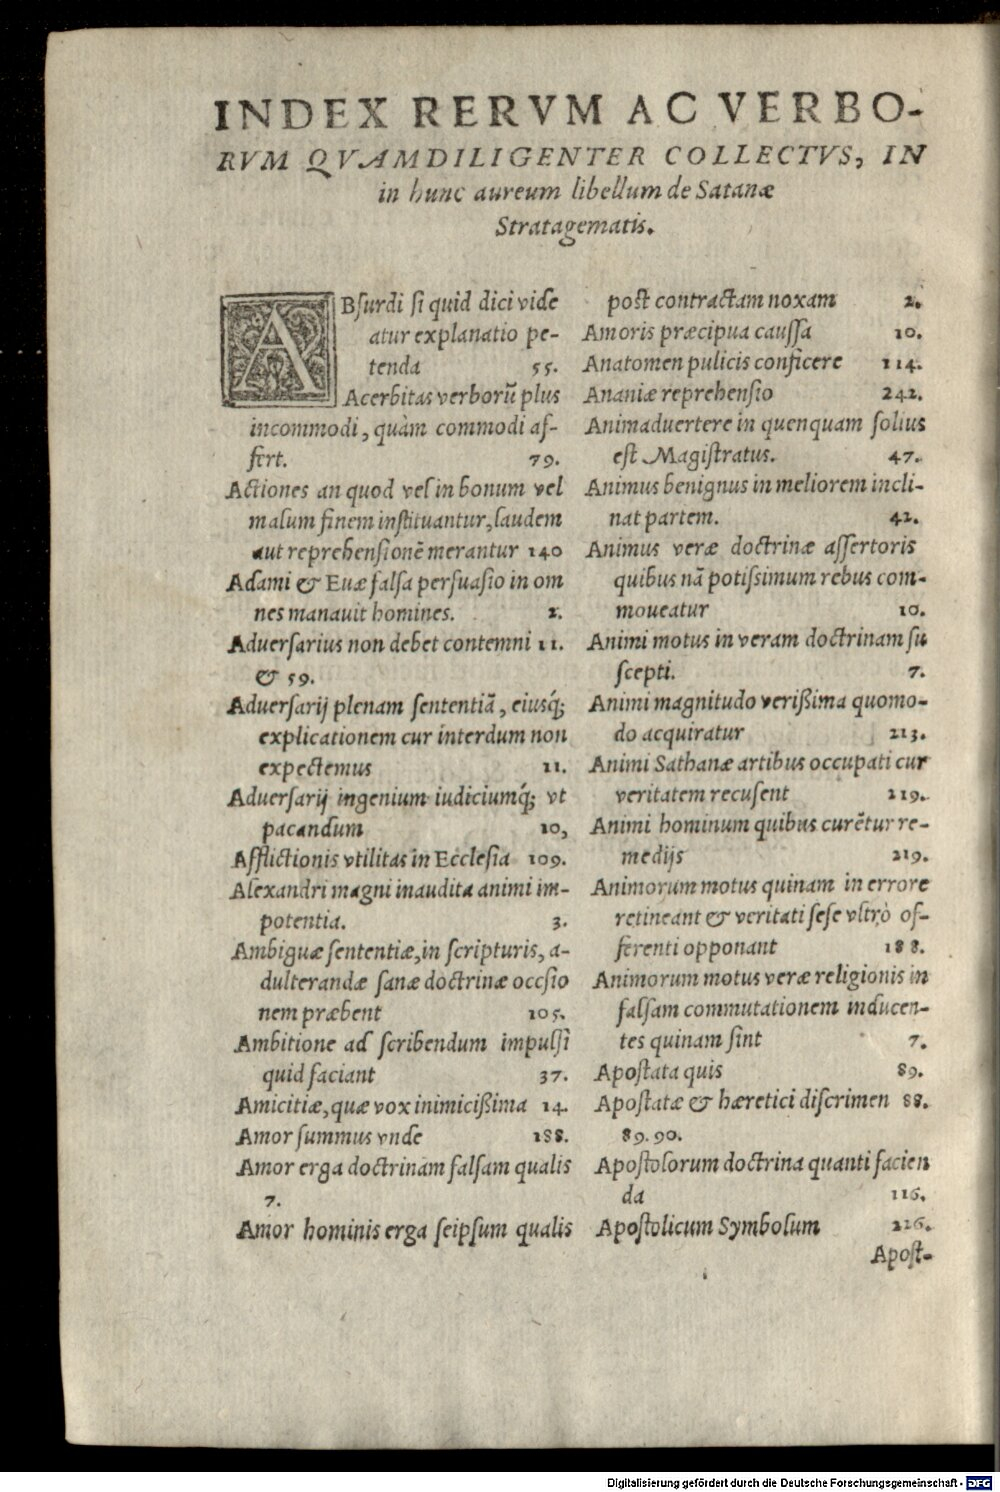 INDEX RERVM AC VERBO-
RVM QVAMDILIGENTER COLLECTVS, IN
in hunc aureum libellum de Satanæ
Stratagematis.
ABsurdi si quid dici vide
atur explanatio pe-
tenda 55.
Acerbitas verborū plus
incommodi, quàm commodi af-
fert. 79.
Actiones an quod vel in bonum vel
malum finem instituantur, laudem
aut reprehensionē merantur 140
Adami & Euæ falsa persuasio in om
nes manauit homines. 2.
Aduersarius non debet contemni 11.
& 59.
Aduersarij plenam sententiā, eiusq́;
explicationem cur interdum non
expectemus 11.
Aduersarij ingenium iudiciumq́; vt
pacandum 10,
Afflictionis vtilitas in Ecclesia 109.
Alexandri magni inaudita animi im-
potentia. 3.
Ambiguæ sententiæ, in scripturis, a-
dulterandæ sanæ doctrinæ occsio
nem præbent 105.
Ambitione ad scribendum impulsi
quid faciant 37.
Amicitiæ, quæ vox inimicißima 14.
Amor summus vnde 188.
Amor erga doctrinam falsam qualis
7.
Amor hominis erga seipsum qualis
post contractam noxam 2.
Amoris præcipua caussa 10.
Anatomen pulicis conficere 114.
Ananiæ reprehensio 242.
Animaduertere in quenquam solius
est Magistratus. 47.
Animus benignus in meliorem incli-
nat partem. 42.
Animus veræ doctrinæ assertoris
quibus nā potissimum rebus com-
moueatur 10.
Animi motus in veram doctrinam su
scepti. 7.
Animi magnitudo verißima quomo-
do acquiratur 213.
Animi Sathanæ artibus occupati cur
veritatem recusent 219.
Animi hominum quibus curētur re-
medijs 219.
Animorum motus quinam in errore
retineant & veritati sese vltrò of-
ferenti opponant 188.
Animorum motus veræ religionis in
falsam commutationem inducen-
tes quinam sint 7.
Apostata quis 89.
Apostatæ & hæretici discrimen 88.
89. 90.
Apostolorum doctrina quanti facien
da 116.
Apostolicum Symbolum 226.
Apost-
Digitalisierung gefördert durch die Deutsche Forschungsgemeinschaft - DFG